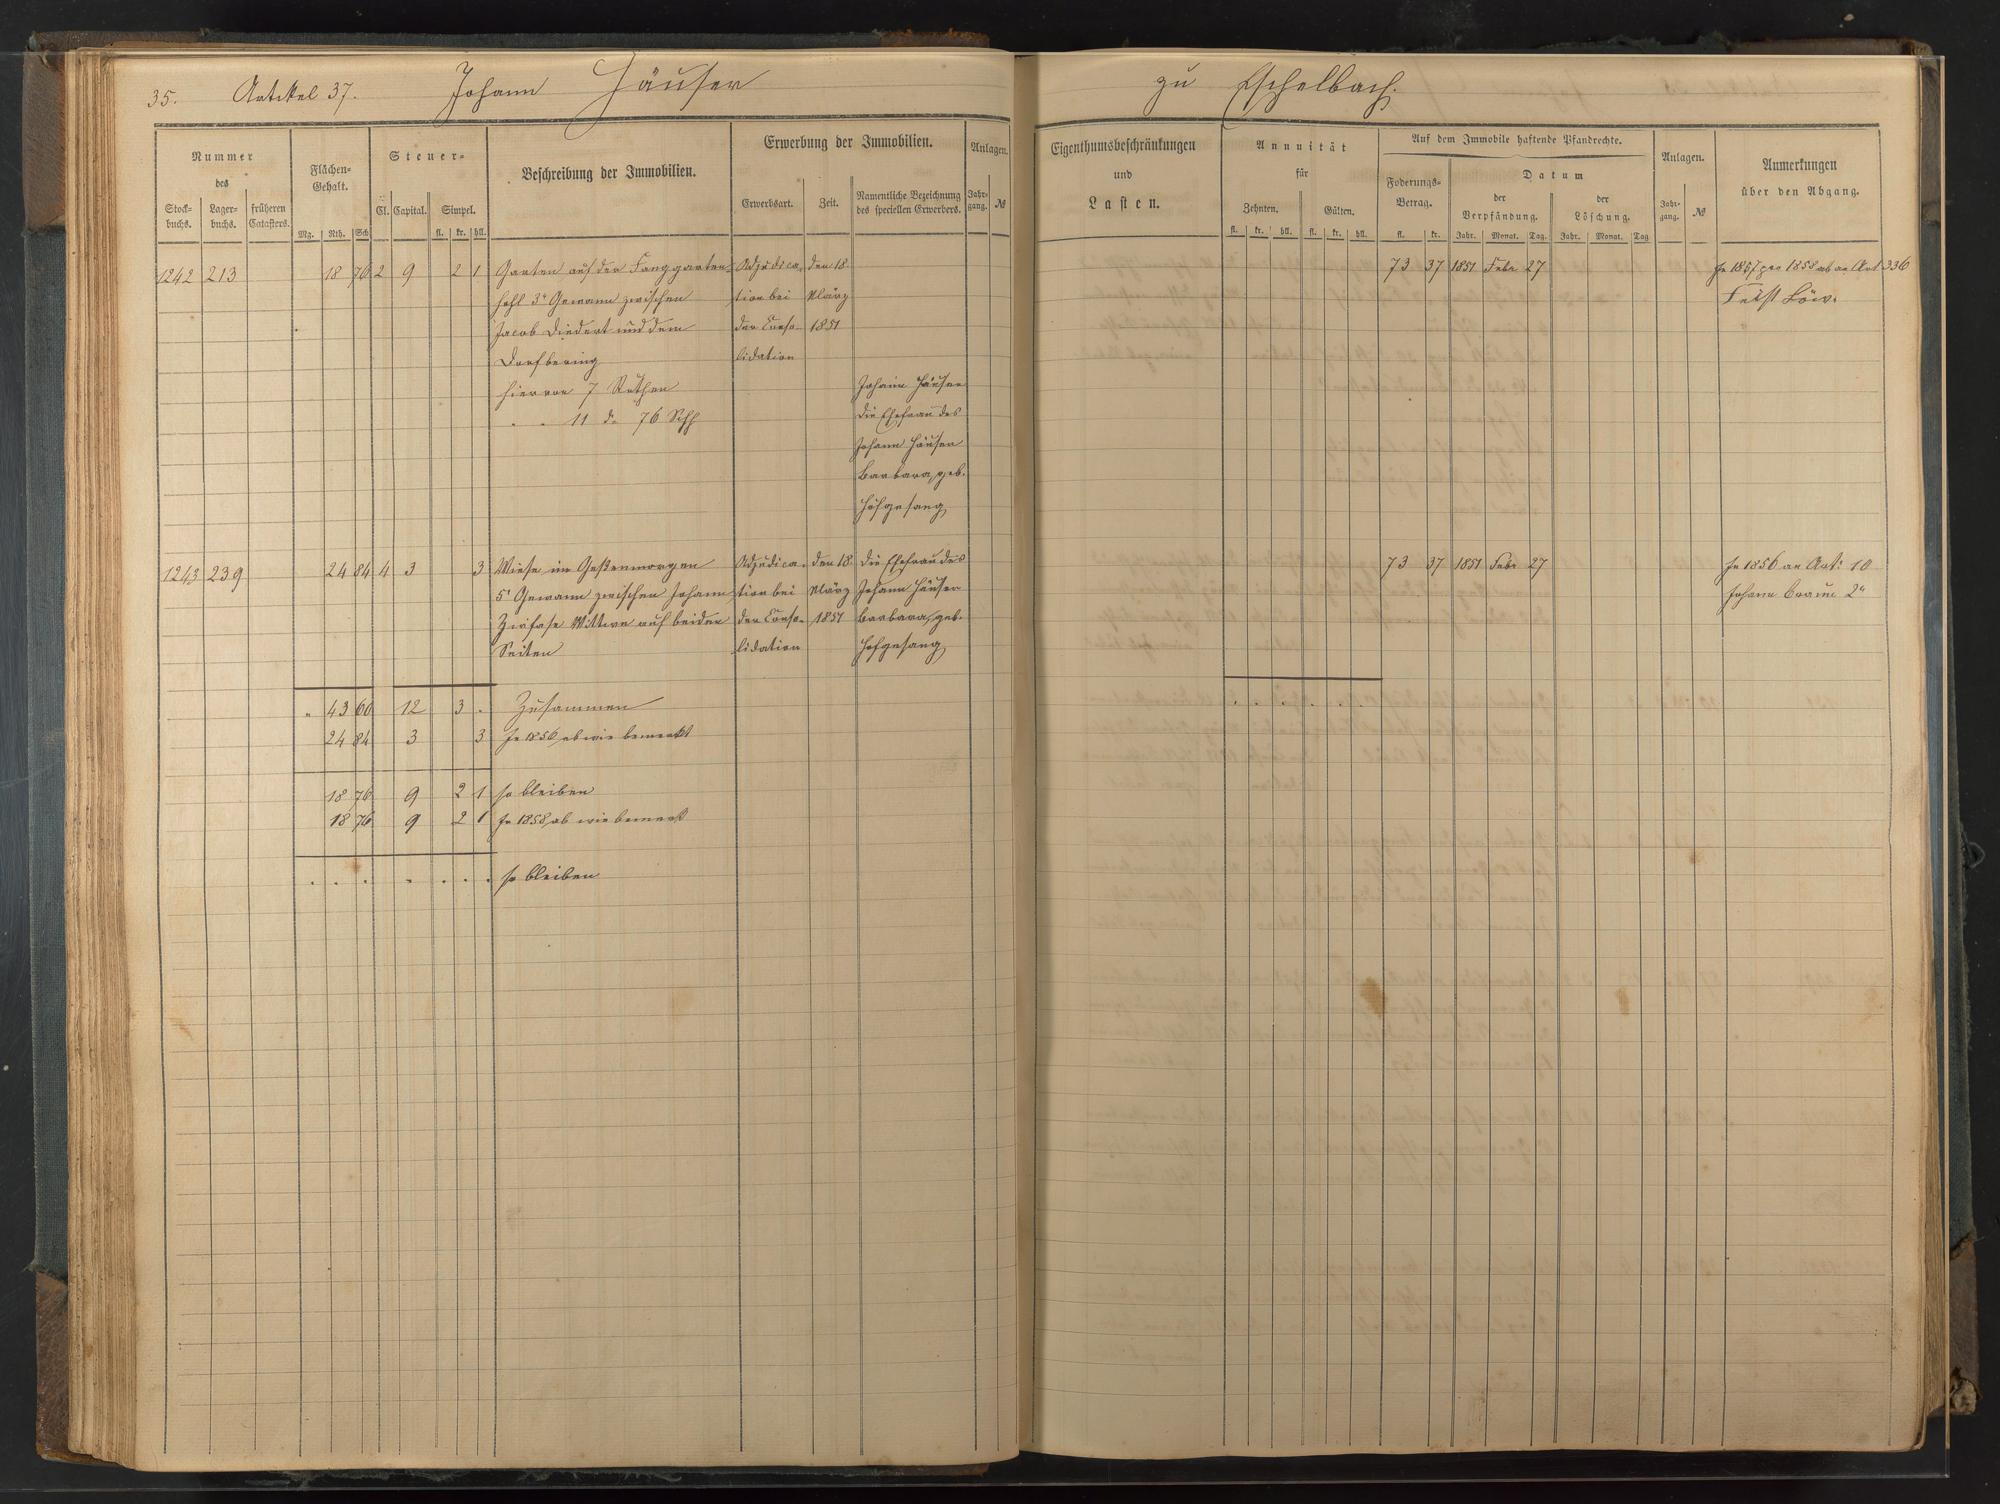 35. Artikel 37. Johann Häuser zu Eschelbach.
Nummer des
Stock-buchs. Lager-buchs. früheren Catasters.
Flächen-Gehalt.
Mg. Rth. Sch
Steuer-
Cl. Capital. Simpel.
fl. kr. hll.
Beschreibung der Immobilien.
Erwerbung der Immobilien.
Erwerbsart. Zeit. Namentliche Bezeichnung des speciellen Erwerbers.
Anlagen.
Jahr-gang. №
Eigenthumsbeschränkungen und Lasten.
Annuität für
Zehnten. Gülten.
fl. kr. hll. fl. kr. hll.
Auf dem Immobile haftende Pfandrechte.
Foderungs-Betrag. Datum
fl. kr.
der Verpfändung. der Löschung.
Jahr. Monat. Tag. Jahr. Monat. Tag
Anlagen.
Jahr-gang. №
Anmerkungen über den Abgang.
1242 213 18 76 2 9 2 1 Garten auf der Langgarten- Adjudica- den 18 73 37 1851 Febr 27 Je 1857 pro 1858 ab an Art 336
hohl 3r Gewann zwischen tion bei März Feist Löw.
Jacob Diedert und dem der Conso- 1851
Dorfbering lidation
hiervon 7 Ruthen Johann Häuser
" " 11 do 76 Schh die Ehefrau des
Johann Häuser
Barbara, geb.
Hofgesang
1243 239 24 84 4 3 3 Wiese im Geßenmorgen Adjudica- den 18. die Ehefrau des 73 37 1851 Febr 27 Je 1856 an Art: 10
5r Gewann zwischen Johann tion bei März Johann Häuser Johann Braun 2r
Wittwe auf beiden der Conso- 1851 Barbara, geb.
Seiten lidation Hofgesang
" 43 60 12 3 . Zusammen
24 84 3 3 Je 1856 ab wie bemerkt
18 76 9 2 1 so bleiben
18 76 9 2 1 Je 1858 ab wie bemerkt
. . . . . . . so bleiben